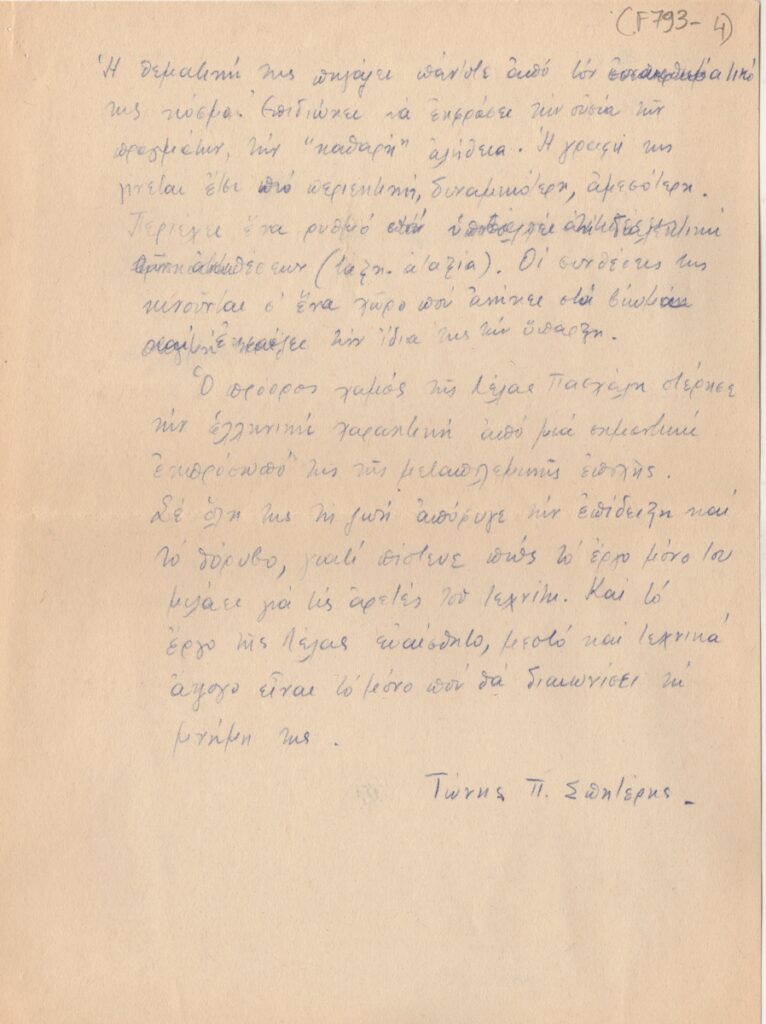 (F793-4)
Ἡ θεματική της πηγάζει πάντοτε ἀπό τόν
της κόσμο. Ἐπιδιώκει νά ἐκφράσει τήν οὐσία τῶν
πραγμάτων, τήν "καθαρή" ἀλήθεια. Ἡ γραφή της
γίνεται ἔτσι πιό περιεκτική, δυναμικότερη, ἀμεσότερη.
Περιέχει ἕνα ρυθμό
(τάξη. ἀταξία). Οἱ συνθέσεις της
κινοῦνται σ' ἕνα χῶρο πού ἀνήκει στά
τήν ἴδια της τήν ὕπαρξη.
Ὁ πρόωρος χαμός τῆς Λέλας Πασχάλη στέρησε
τήν ἑλληνική χαρακτική ἀπό μιά σημαντική
ἐκπρόσωπό της τῆς μεταπολεμικῆς ἐποχῆς.
Σέ ὅλη της τή ζωή ἀπόφυγε τήν ἐπίδειξη καί
τό θόρυβο, γιατί πίστευε πώς τό ἔργο μόνο του
μιλάει γιά τίς ἀρετές τοῦ τεχνίτη. Καί τό
ἔργο τῆς Λέλας εὐαίσθητο, μεστό καί τεχνικά
ἄψογο εἶναι τό μόνο πού θά διαιωνίσει τή
μνήμη της.
Τώνης Π. Σπητέρης